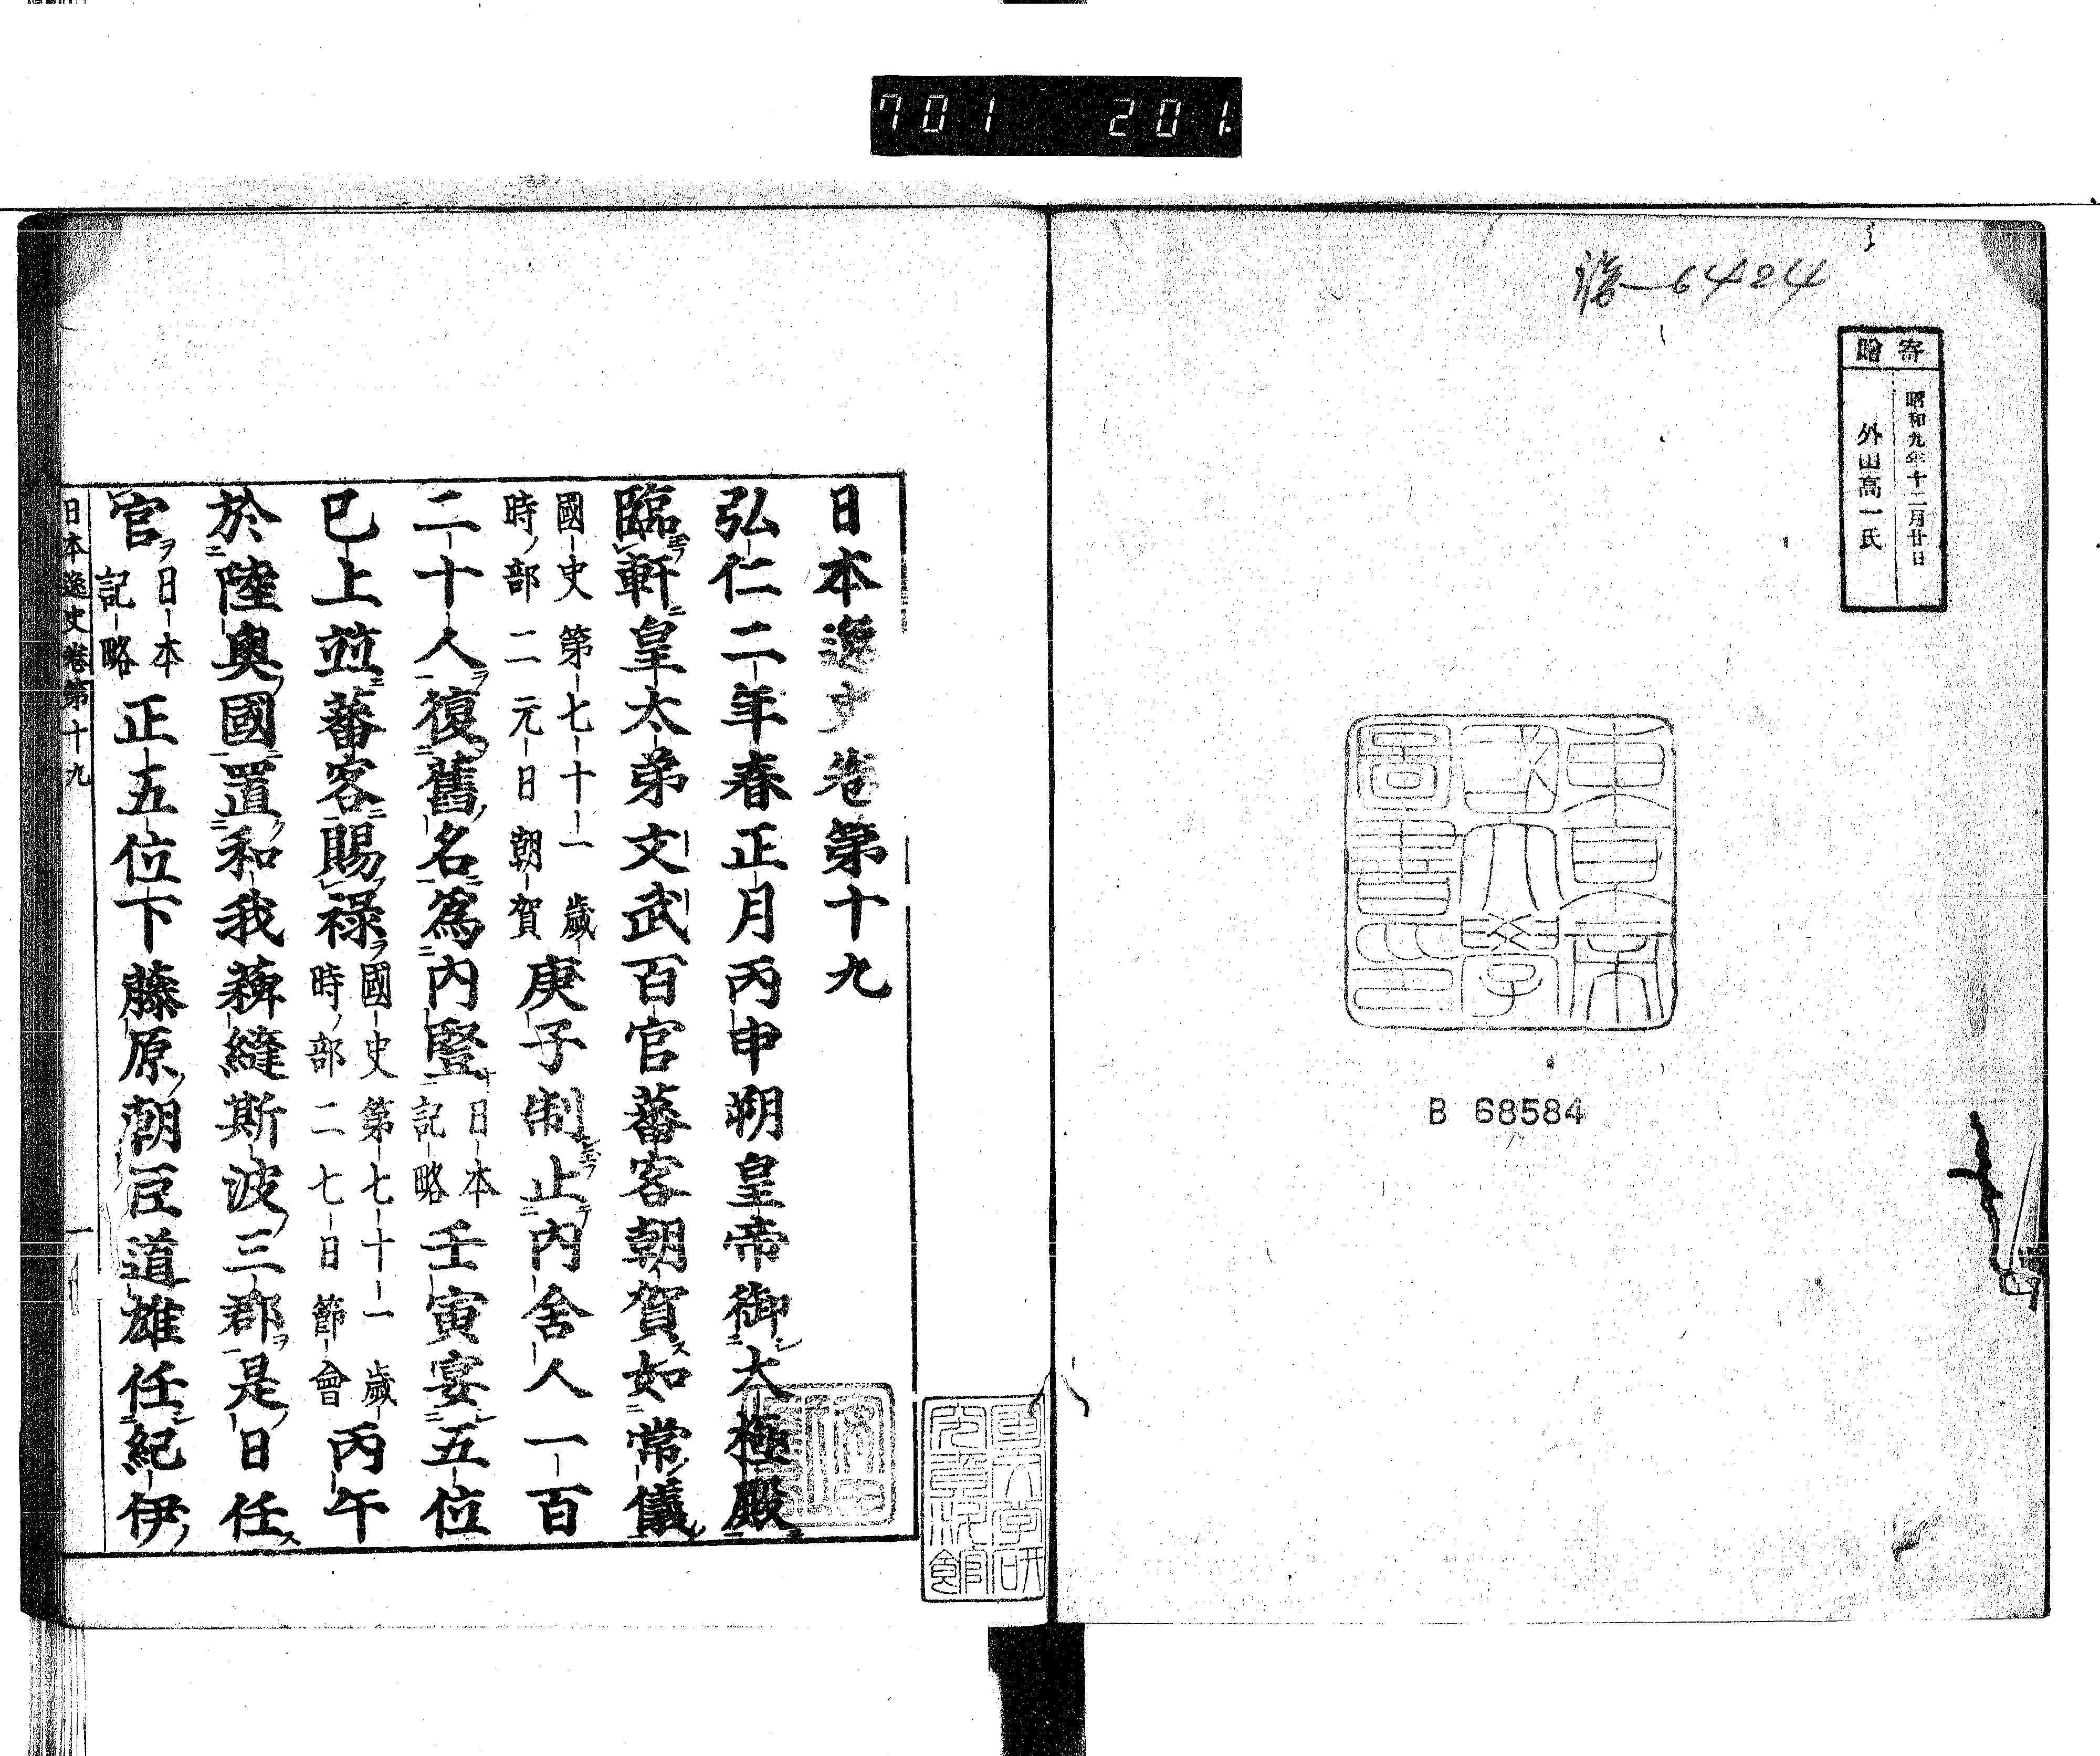 701 201
6424
寄贈
昭和九年十二月廿日
外山高一氏
東京帝
國大學
圖書印
B 68584
日本逸史卷第十九
弘仁二年春正月丙申朔皇帝御大極殿
臨軒皇太弟文武百官蕃客朝賀如常儀
國史第七十一歲
時部二元日朝賀
庚子制止內舍人一百
二十人復舊名爲內豎
日本
記略
壬寅宴五位
已上並蕃客賜祿
國史第七十一歲
時部二七日節會
丙午
於陸奧國置和我薭縫斯波三郡是日任
官
日本
記略
正五位下藤原朝臣道雄任紀伊
日本逸史卷第十九
一